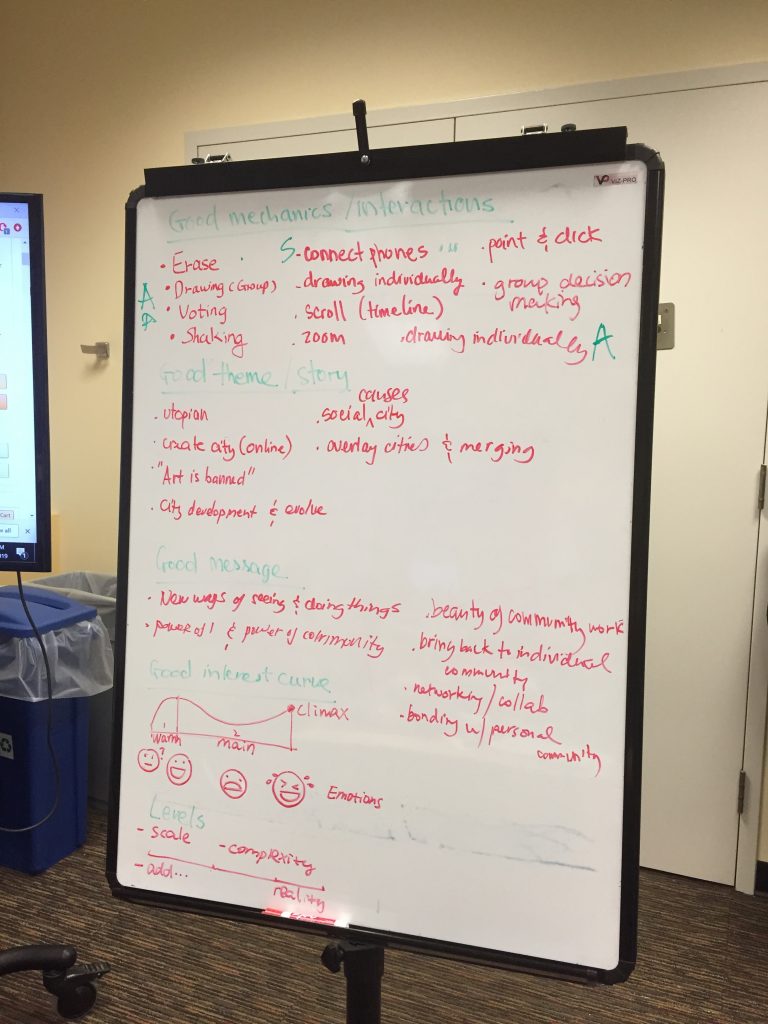 VIZ-PRO
Good mechanics / interactions
• Erase
A • Drawing (Group)
A • Voting
• Shaking
S - connect phones
- drawing individually
• scroll (timeline)
• zoom
• point & click
• group decision
making
• drawing individually A
Good theme / story
• utopian
• create city (online)
• "Art is banned"
• City development & evolve
causes
• social ^ city
• overlay cities & merging
Good message
• New ways of seeing & doing things
• power of 1 & power of community
• beauty of community work
• bring back to individual
community
• networking / collab
- bonding w/ personal
community
Good interest curve
climax
1
warm
2
main
?
Emotions
Levels
- scale
- complexity
- add...
reality